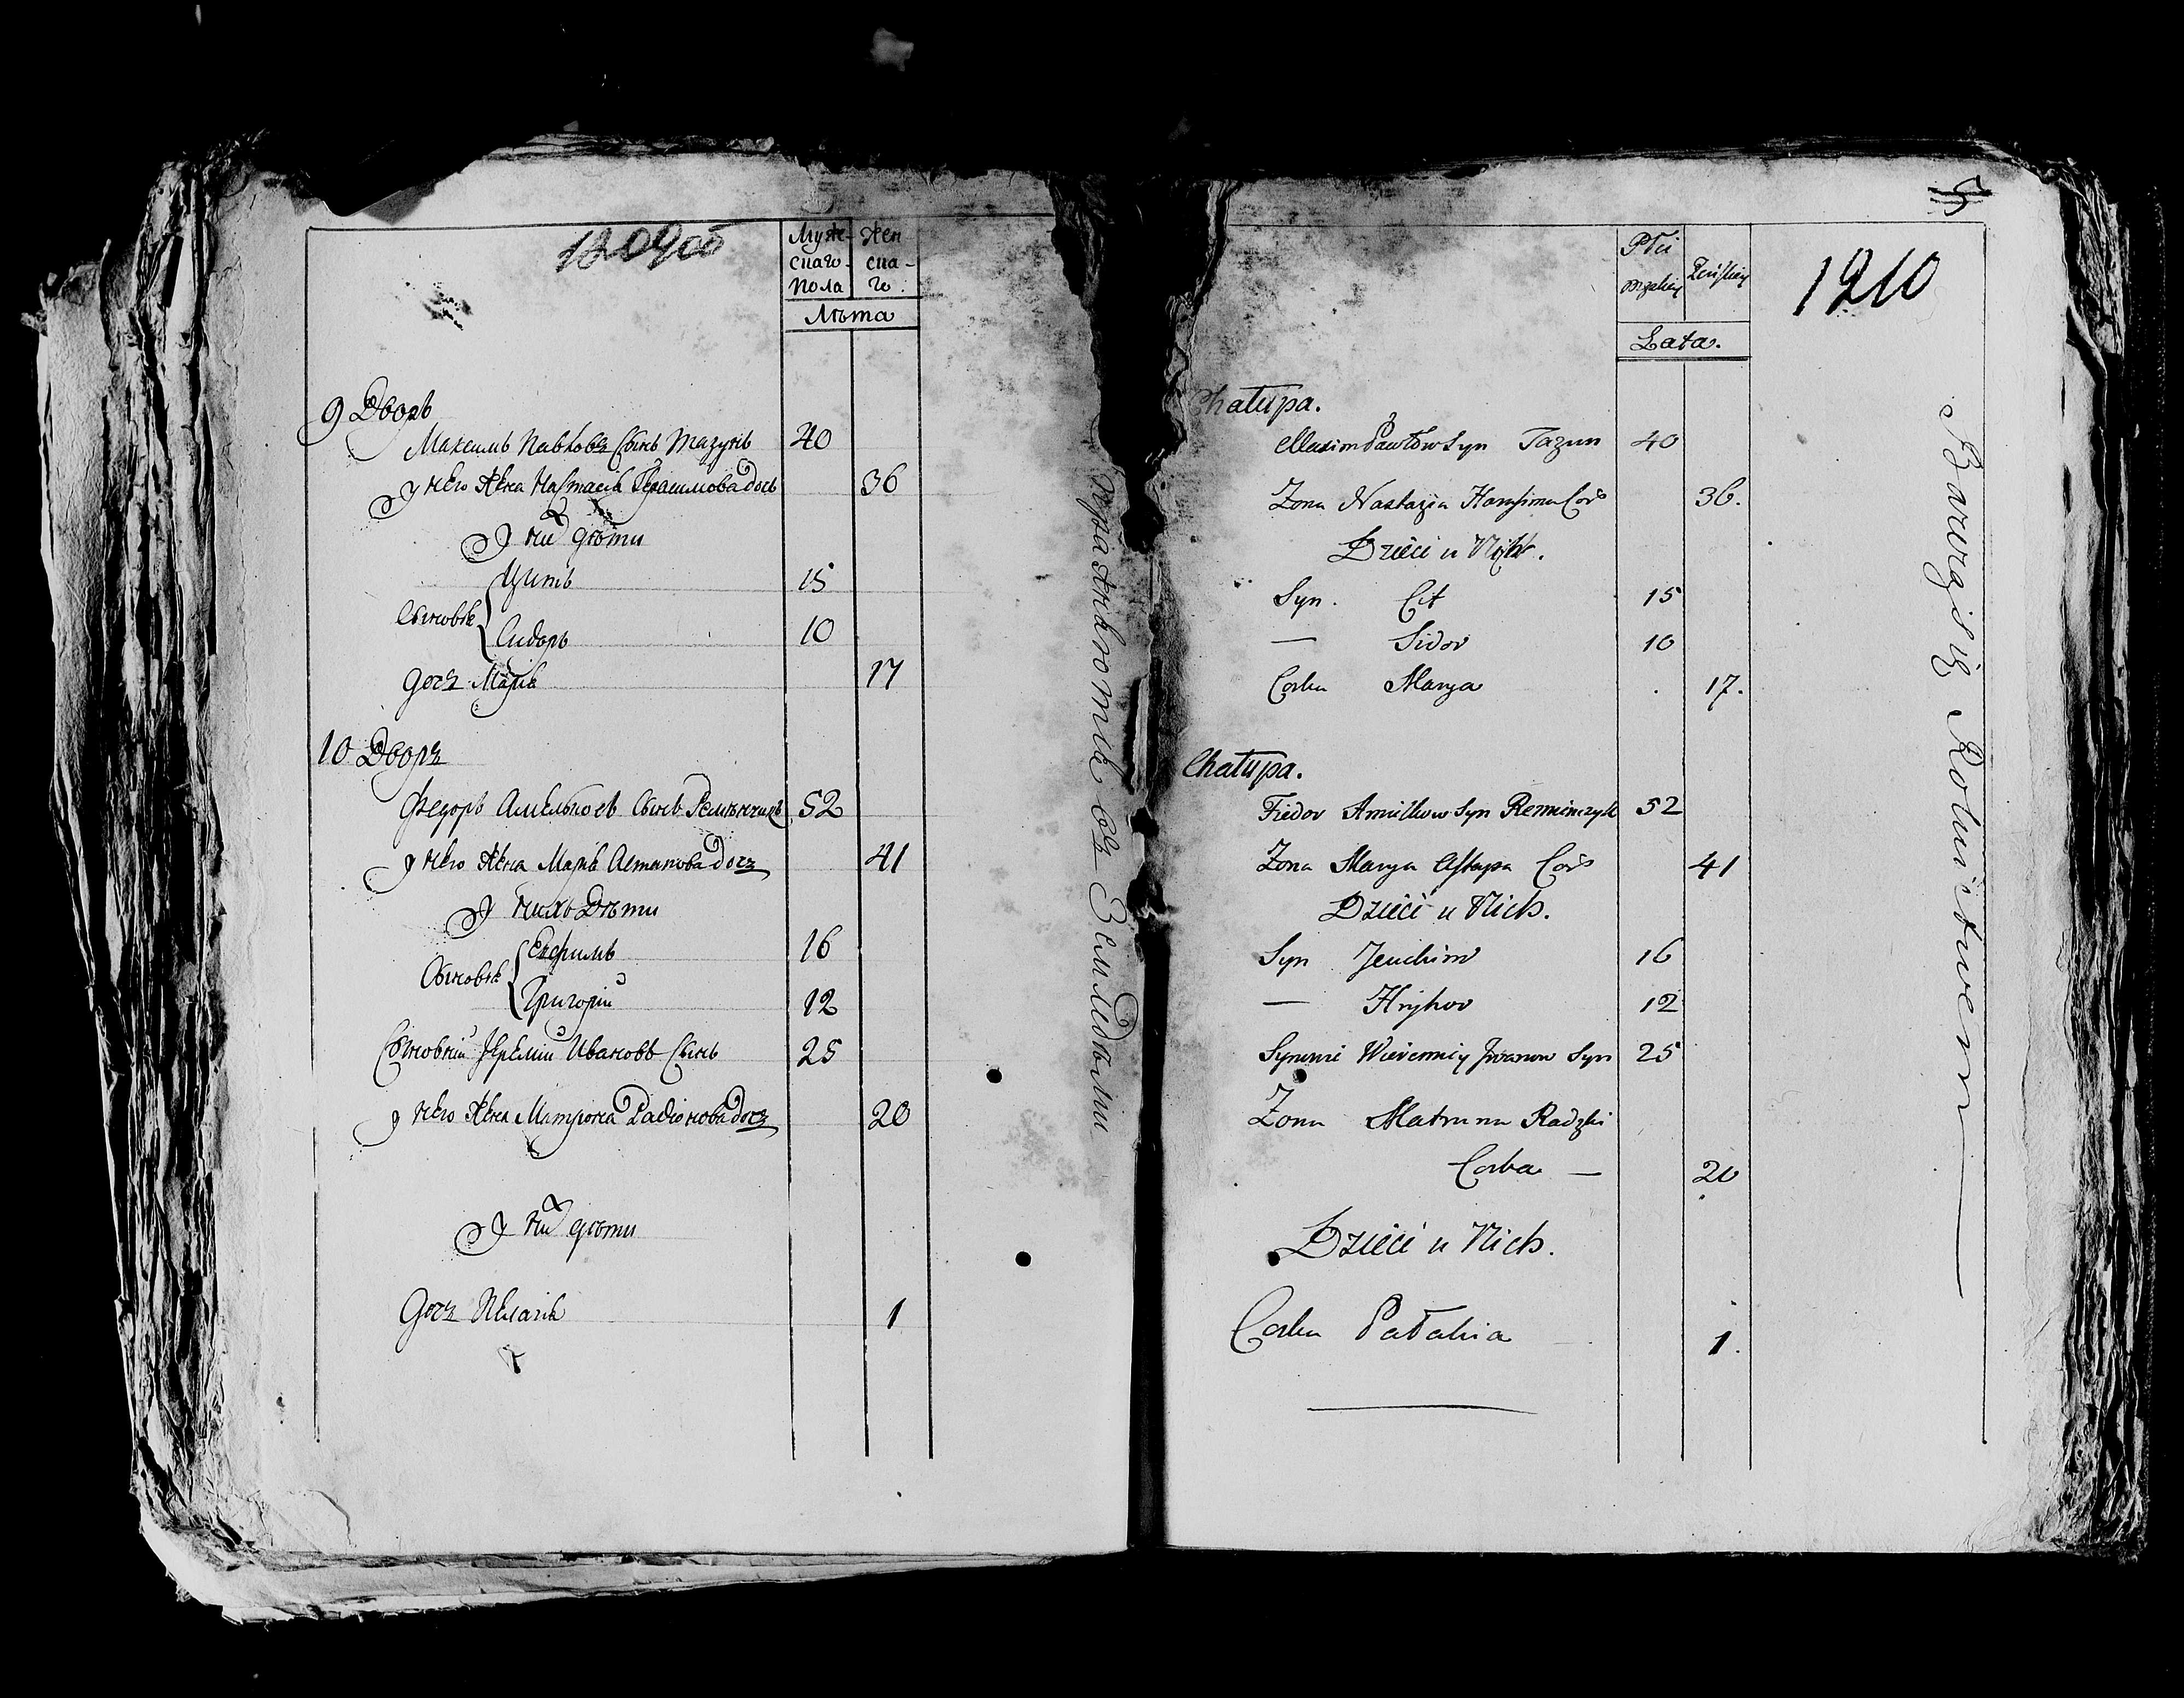 1209об
Муже- Жен
скаго ска-
пола го.
Лѣта
9 Дворъ
Максимъ Павловъ Сынъ Тазунъ 40
у него Жена Настасiя Герасимова дочь 36
У них дѣти
Сыновья
Цитъ 15
Сидоръ 10
дочь Марiя 17
10 Дворъ
Федоръ Амельковъ Сынъ Ременчикъ 52
у него Жена Марiя Астапова дочь 41
У нихъ Дѣти
Сыновья
Евфимъ 16
Григорiй 12
Iеремiй Ивановъ Сынъ 25
у него Жена Матрона Радiонова дочь 20
У них дѣти
дочь Пелагiя 1
съ Земледѣлия
1210
Płci
męskiey Żeńskiey
Lata.
Chałupa.
Maxim Pawłow Syn Tazun 40
Zona Nastazia Cor 36.
Dzieci u Nich.
Syn. Cit 15
— Sidor 10
Corka Marya 17.
Chałupa.
Fiedor Amielkow Syn Remienczyk 52
Zona Marya Astapa Cor 41
Dzieci u Nich.
Syn Jeuchim 16
— Hryhor 12
Iwanow Syn 25
Zona Matruna Radzki
Corka — 20
Dzieci u Nich.
Corka Pałahia 1.
Bawza się Rolnictwem